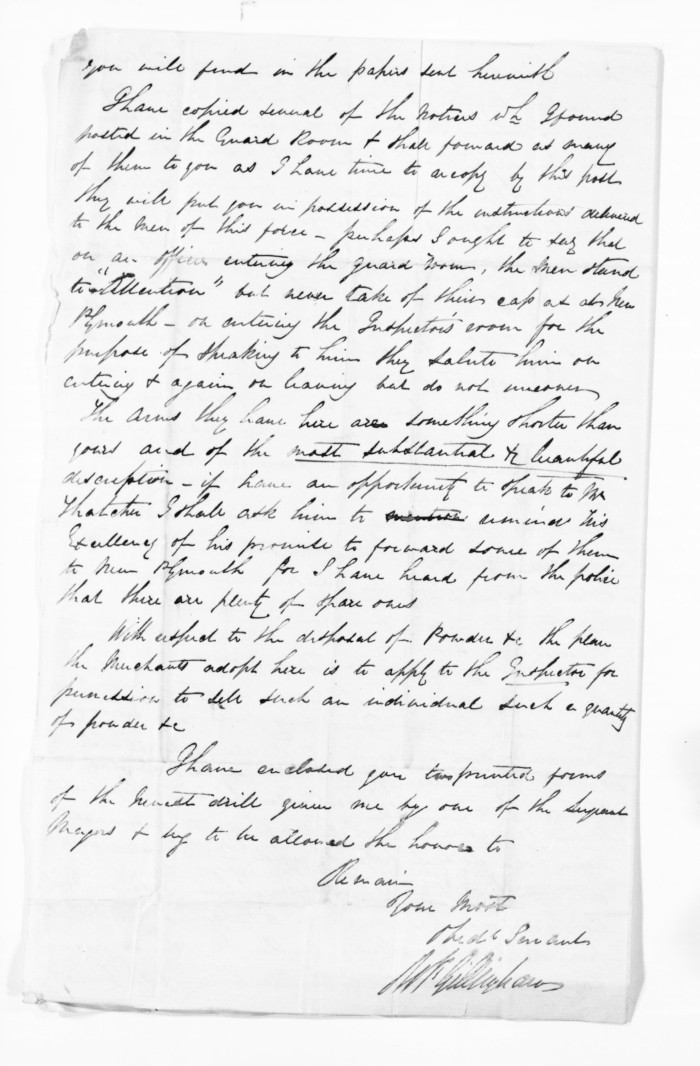 you will find in the papers sent herewith
I have copied several of the Notices wh I found
posted in the Guard Room & shall forward as many
of them to you as I have time to recopy by this post
they will put you in possession of the instructions delivered
to the men of this force – perhaps I ought to say that
on an officer entering the guard room, the Men stand
to "Attention" but never take of their cap as at New
Plymouth – on entering the Inspector's room for the
purpose of speaking to him they salute him on
entering & again on leaving but do not uncover
The arms they have here are something shorter than
yours and of the most substantial & beautiful
description – if have an opportunity to speak to Mr
Thatcher I shall ask him to mention remind his
Excellency of his promise to forward some of them
to New Plymouth for I have heard from the police
that there are plenty of spare ones
With respect to the disposal of Powder &c the plan
the Merchants adopt here is to apply to the Inspector for
permission to sell such an individual such a quantity
of powder &c
I have enclosed you two printed forms
of the drill given me by one of the Sergeant
Majors & beg to be allowed the honor to
Remain
Your Most
Obedt Servant
Gillingham